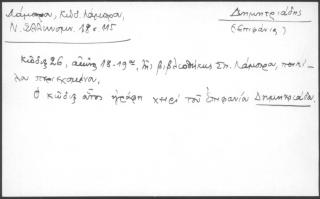 Λάμπρου, Κώδ. Λάμπρου,
Ν. Ἑλληνομν. 18 σ 115
Δημητριάδης
(Ἐπιφάνιος)
Κώδιξ 26, αἰῶν 18-19ος, τῆς βιβλιοθήκης Σπ. Λάμπρου, ποικί-
λου περιεχομένου,
Ὁ κῶδιξ οὗτος ἐγράφη χειρὶ τοῦ Ἐπιφανίου Δημητριάδου.